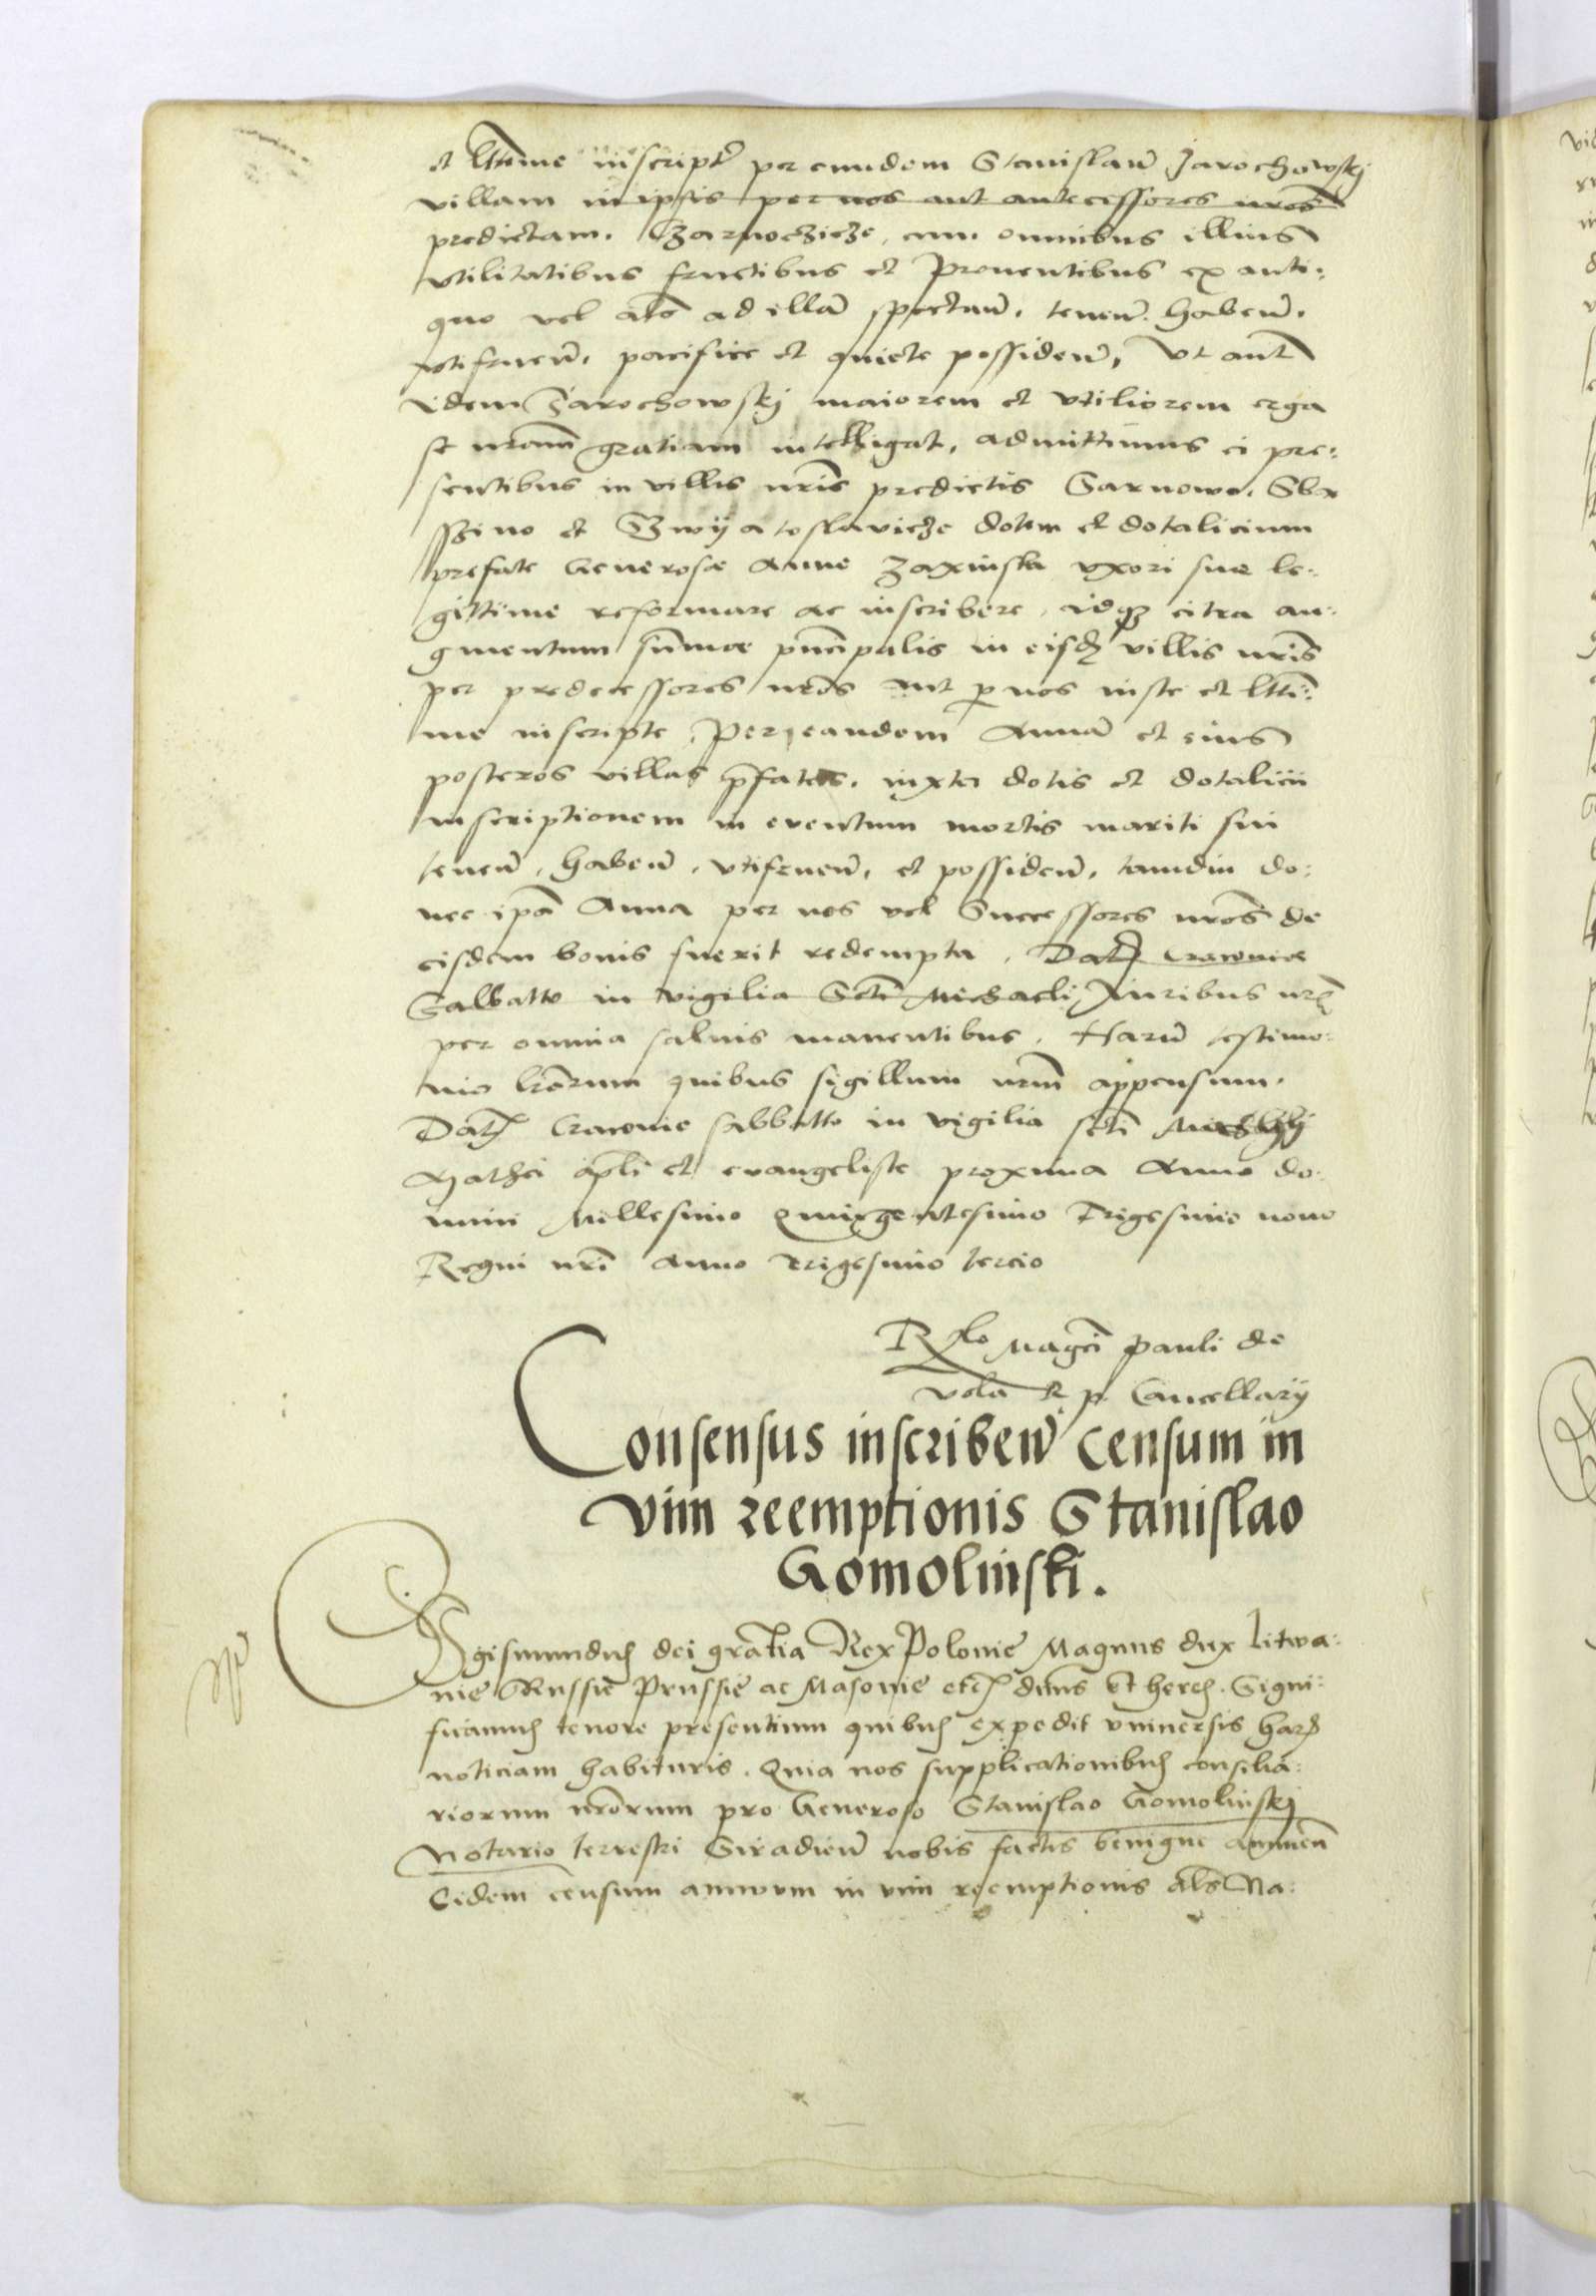 et lttime inscript per eundem Stanislaū Jarochowskj
villam in ipsis per nos aut antecessores nrōs
predictam. Czarnoczicze, cum omnibus illius
vtilitatibus fructibus et Prouentibus ex anti:
quo vel alē ad illā spectan̄. tenen̄. haben̄.
vtifruen̄. pacifice et quiete possiden̄. Vt aut̄
idem Jarochowskj maiorem et vtiliorem erga
se nrām gratiam intelligat, admittimus ei pre:
sentibus in villis nrīs predictis Sarnowo, Sbr
sszino et Swyatoslavicze dotem et dotalicium
prefate Generosæ Anne Zaxinska vxori suæ le:
gittime reformare ac inscribere, idqz citra au:
gmentum sūmæ prīncipalis in eisdz villis nrīs
per predecessores nrōs aut p nos iuste et ltti:
me inscripte. Per eandem Annā et eius
posteros villas pfatas. iuxta dotis et dotalicii
inscriptionem in eventum mortis mariti sui
tenen̄. haben̄. vtifruen̄. et possiden̄. tamdiu do:
nec ipā Anna per nos vel Successores nrōs de
eisdem bonis fuerit redempta. Dat Cracouiæ
Sabbatto in vigilia Scti Michaeli, Juribus nrīs
per omnia saluis manentibus. Harū testimo:
nio lrārum quibus sigillum nrm̄ appensum.
Dat Cracouie sabbatto in vigilia scti
Mathei apli et evangeliste proxima Anno do:
mini Millesimo Quingentesimo Trigesimo nono
Regni nrī Anno Trigesimo tercio
Rlo Magci Pauli de
Vola R. p. Cancellarij
Consensus inscriben̄ censum in
vim reemptionis Stanislao
Gomolinski.
Sigismundus dei gratia Rex Polonie Magnus dux Litwa:
nie Russie Prussie ac Masouie etc dn̄s et heres. Signi:
ficamus tenore presentium quibus expedit vniuersis har
noticiam habituris. Quia nos supplicationibus consilia:
riorum nrōrum pro Generoso Stanislao Gomolinskj
Notario terrestri Siradien̄ nobis factis benigne annuen̄
Eidem censum annuum in vim reemptionis als Na: